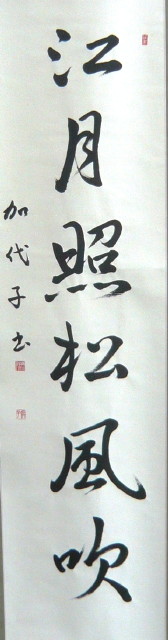 江月照松風吹
加代子书